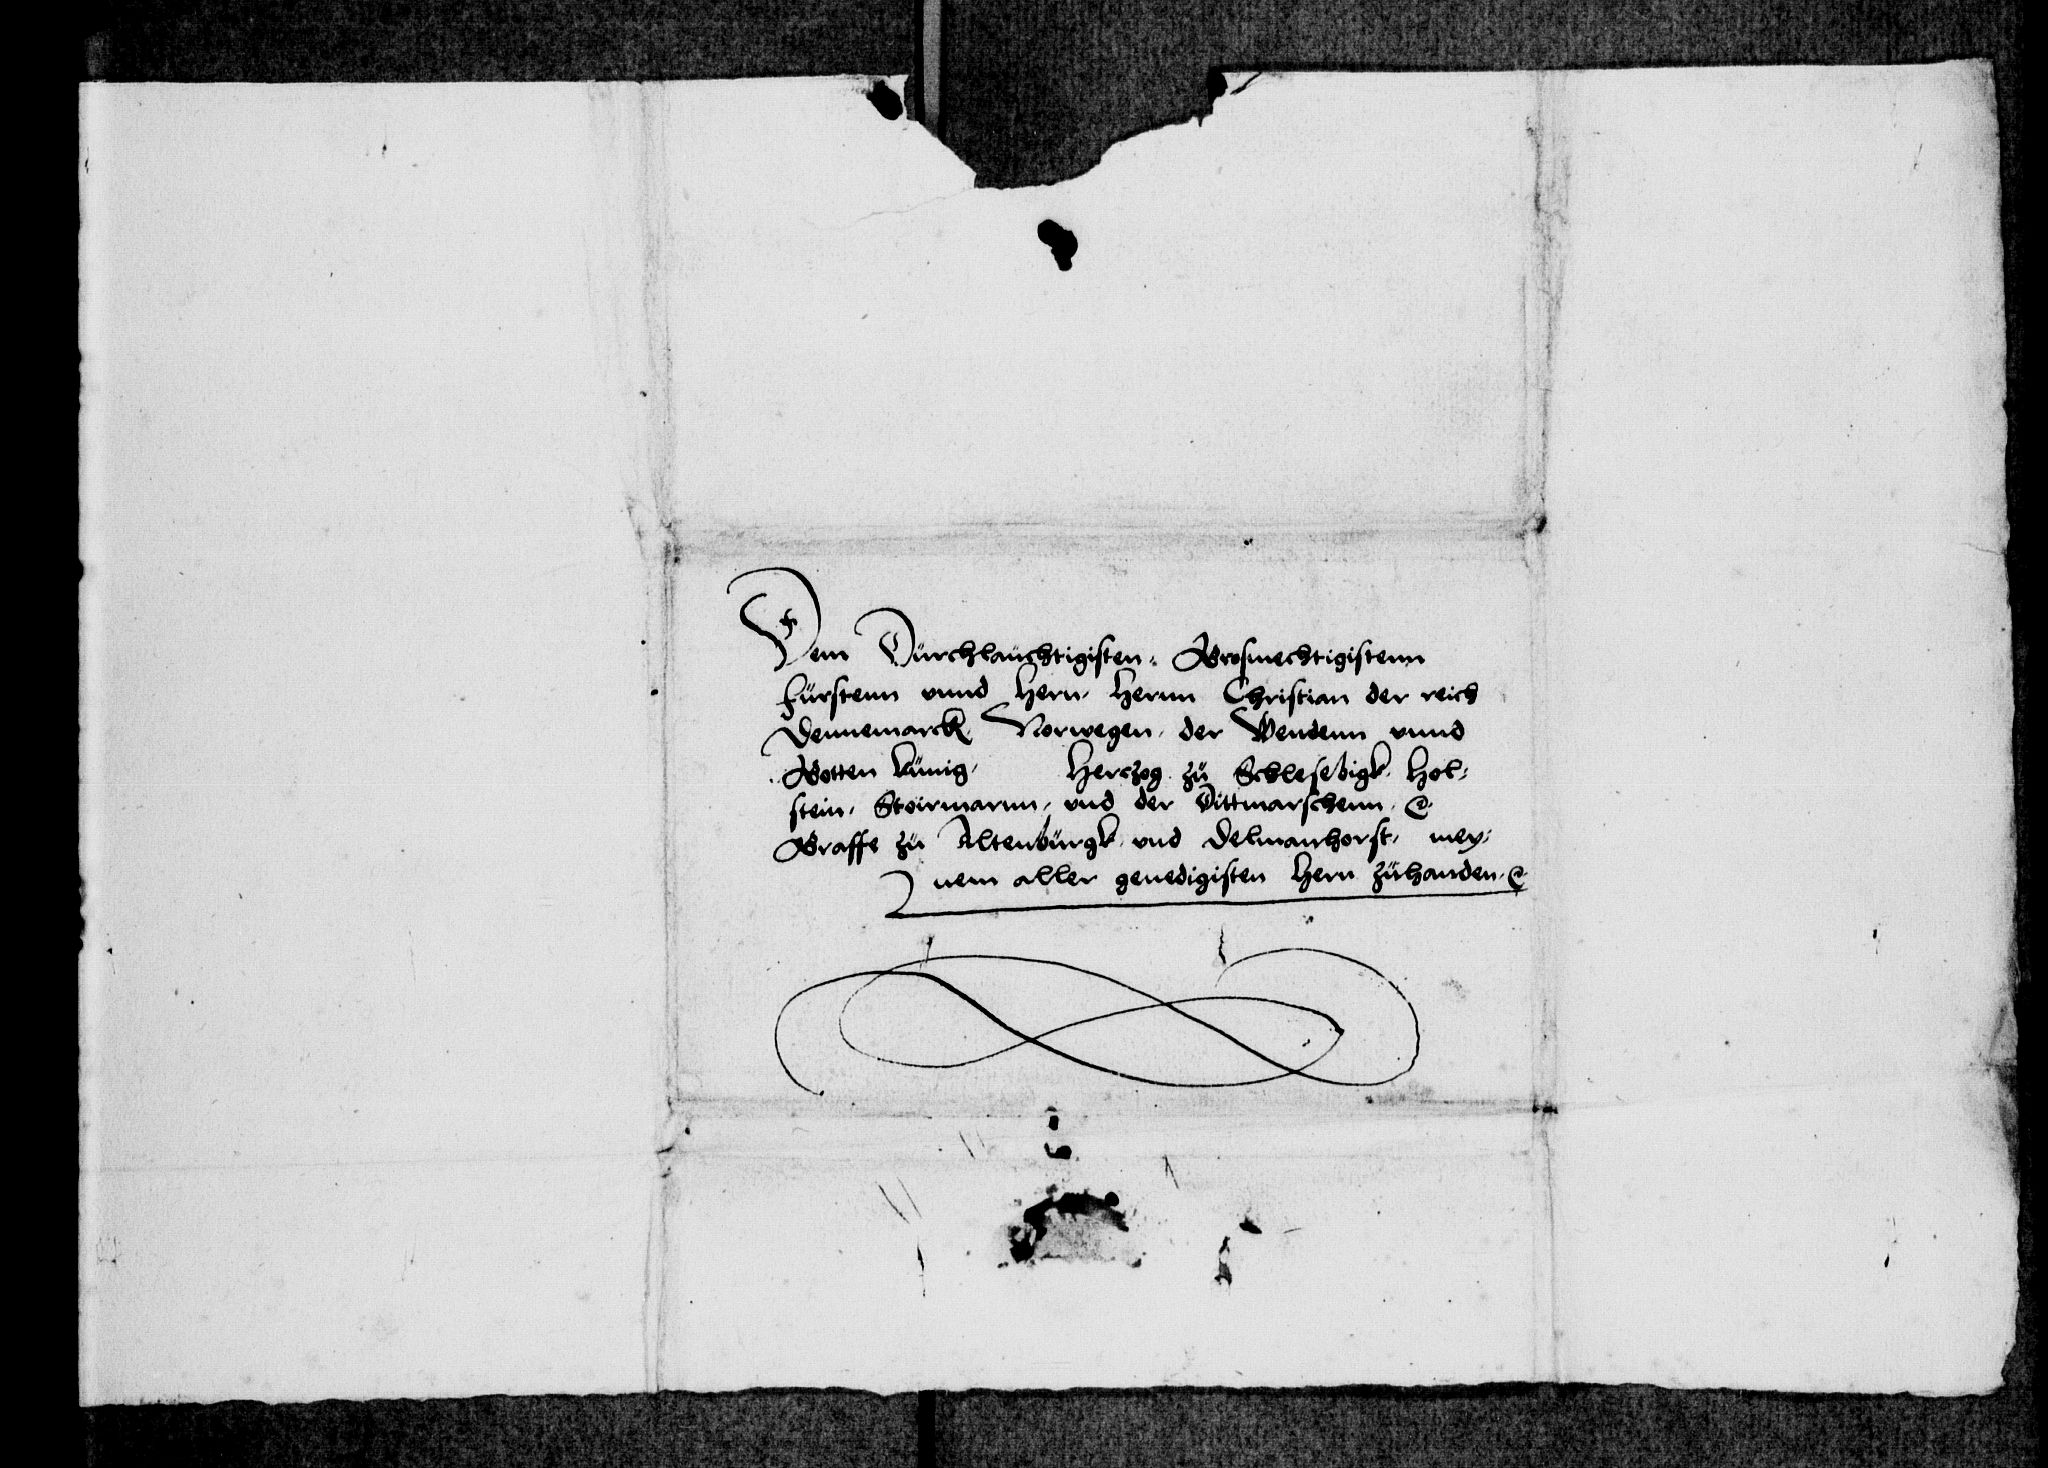 Dem Dürchlaüchtigisten, Grosmechtigistenn
fürstenn vnnd Hern, Hernn Christian der reich
Dennemarck, Norwegen, der Wendenn vnnd
Gotten künig, Herczog zü Schleswigk, Hol-
stein, Stoirmarnn, vnd der Dittmarschenn, &
Graffe zü Altenbürgk vnd Delmanhorst, mey-
nem aller genedigisten Hern zühanden &